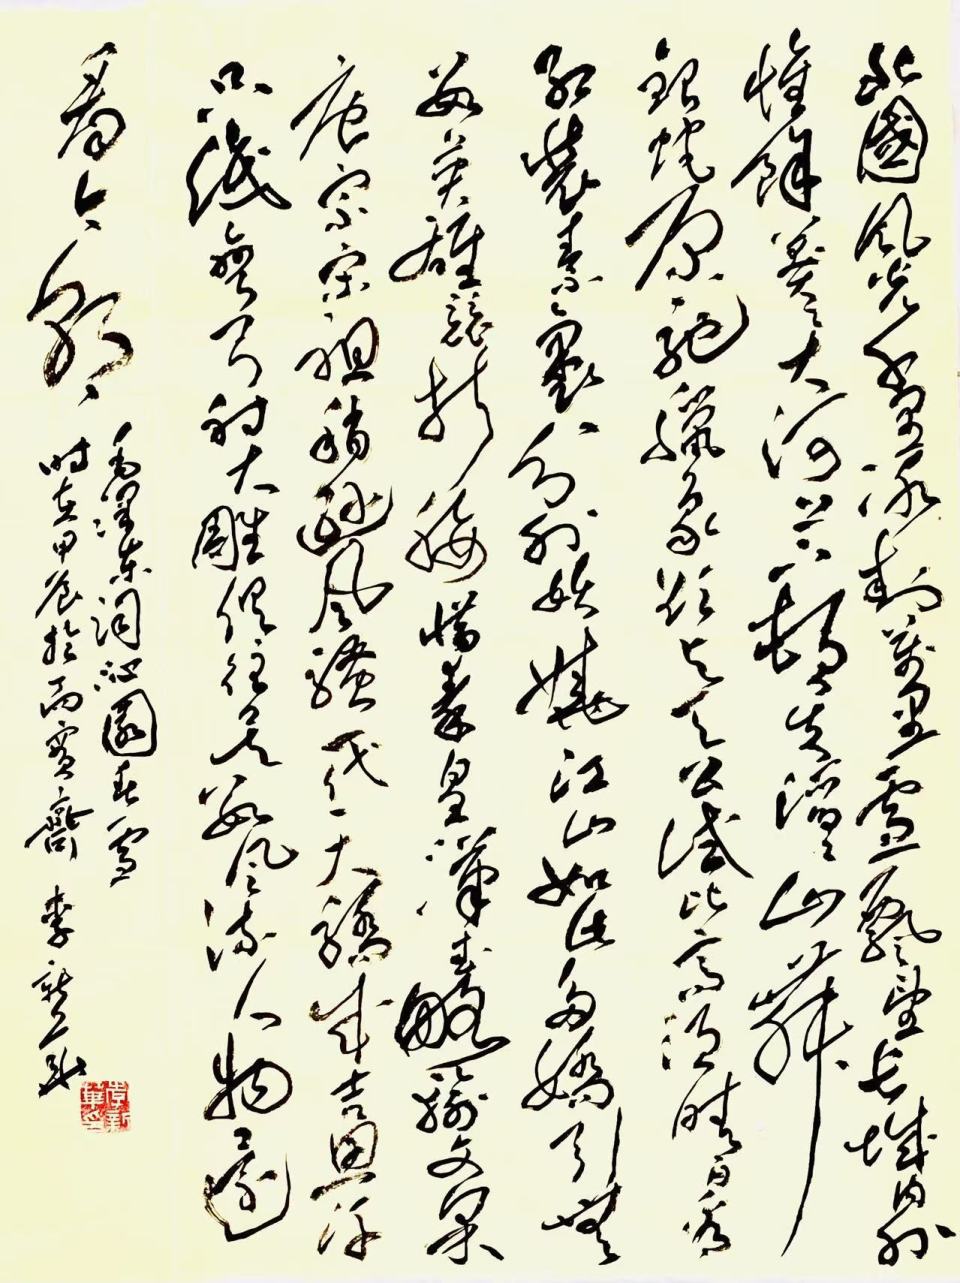 北國風光千里冰封萬里雪飄望長城內外
惟餘莽莽大河上下頓失滔滔山舞
銀蛇原馳蠟象欲与天公試比高須晴日看
紅裝素裹分外妖嬈江山如此多嬌引無
數英雄競折腰惜秦皇漢武略輸文采
唐宗宋祖稍遜風騷一代天驕成吉思汗
只識彎弓射大雕俱往矣數風流人物還
看今朝
毛澤東詞沁園春雪
時在甲辰於齋 李新華
李新華印